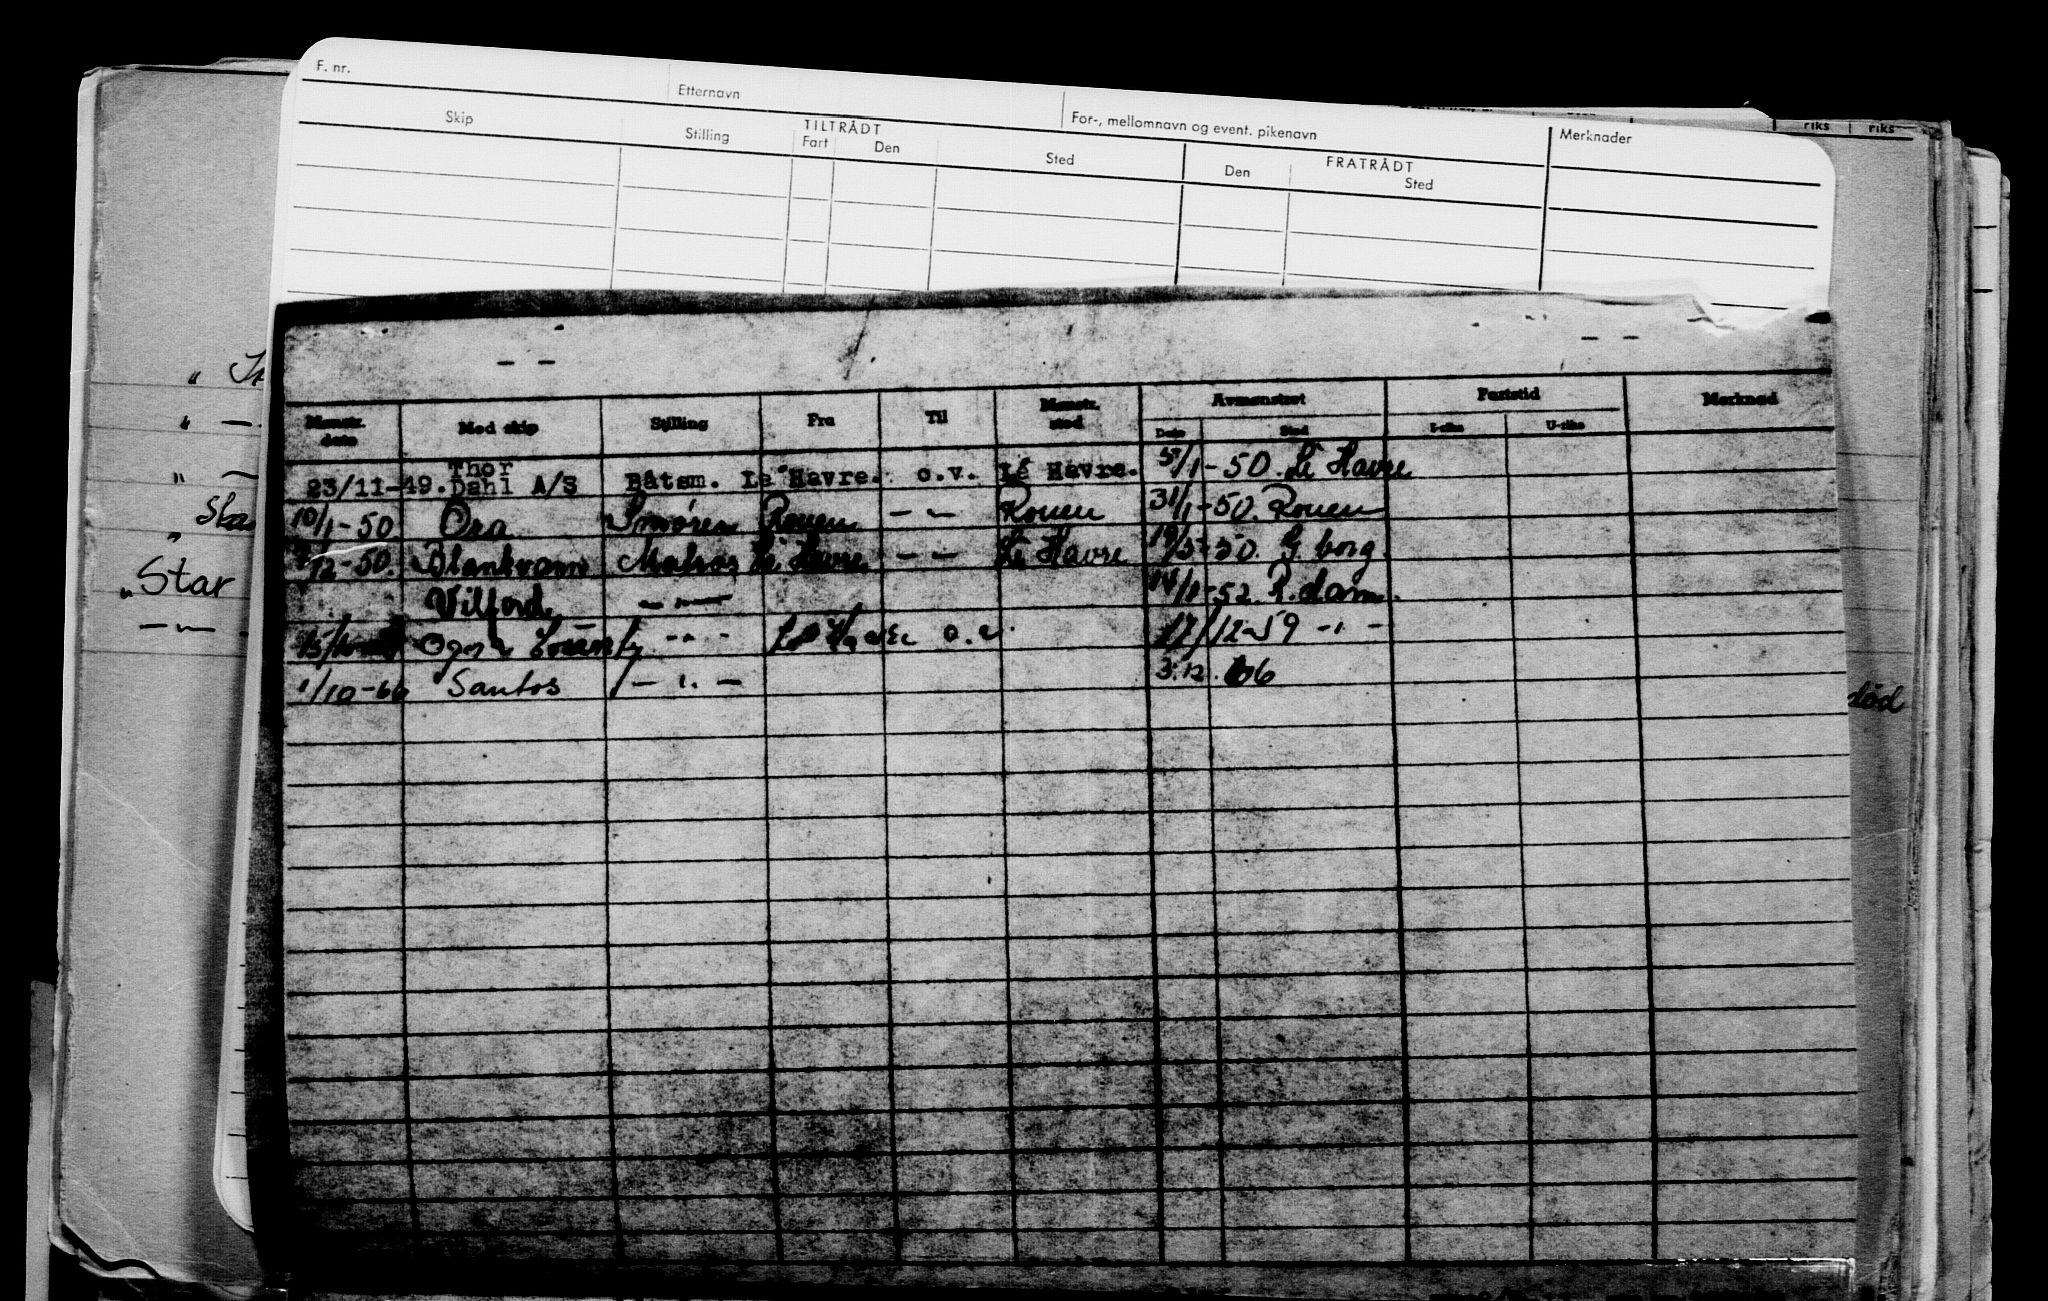 F. nr.
Etternavn
For-, mellomnavn og event. pikenavn
Merknader
riks riks
Skip
Stilling
TILTRÅDT
Fart Den
Sted
FRATRÅDT
Den
Sted
— —
— —
Mønstr. dato
Med skip
Stilling
Fra
Til
Mønstr. sted
Avmønstret
Dato Sted
Fartstid
I-riks U-riks
Merknad
23/11-49. Thor Dahl A/S Båtsm. Le Havre. o.v. Le Havre. 5/1-50. Le Havre
10/1-50 Ora Smører Rouen — " — Rouen 31/1-50. Rouen
/12-50. Blankvann Matros Le Havre — — Le Havre 19/5-50. G.borg
Vilford. — " — 14/1-52. R.dam.
15/ Ogna Le Havre o.v. 17/12-59 - " -
1/10-66 Santos — " — 3.12.66
"
" —
" —
" Star
" Star
— " — -
død